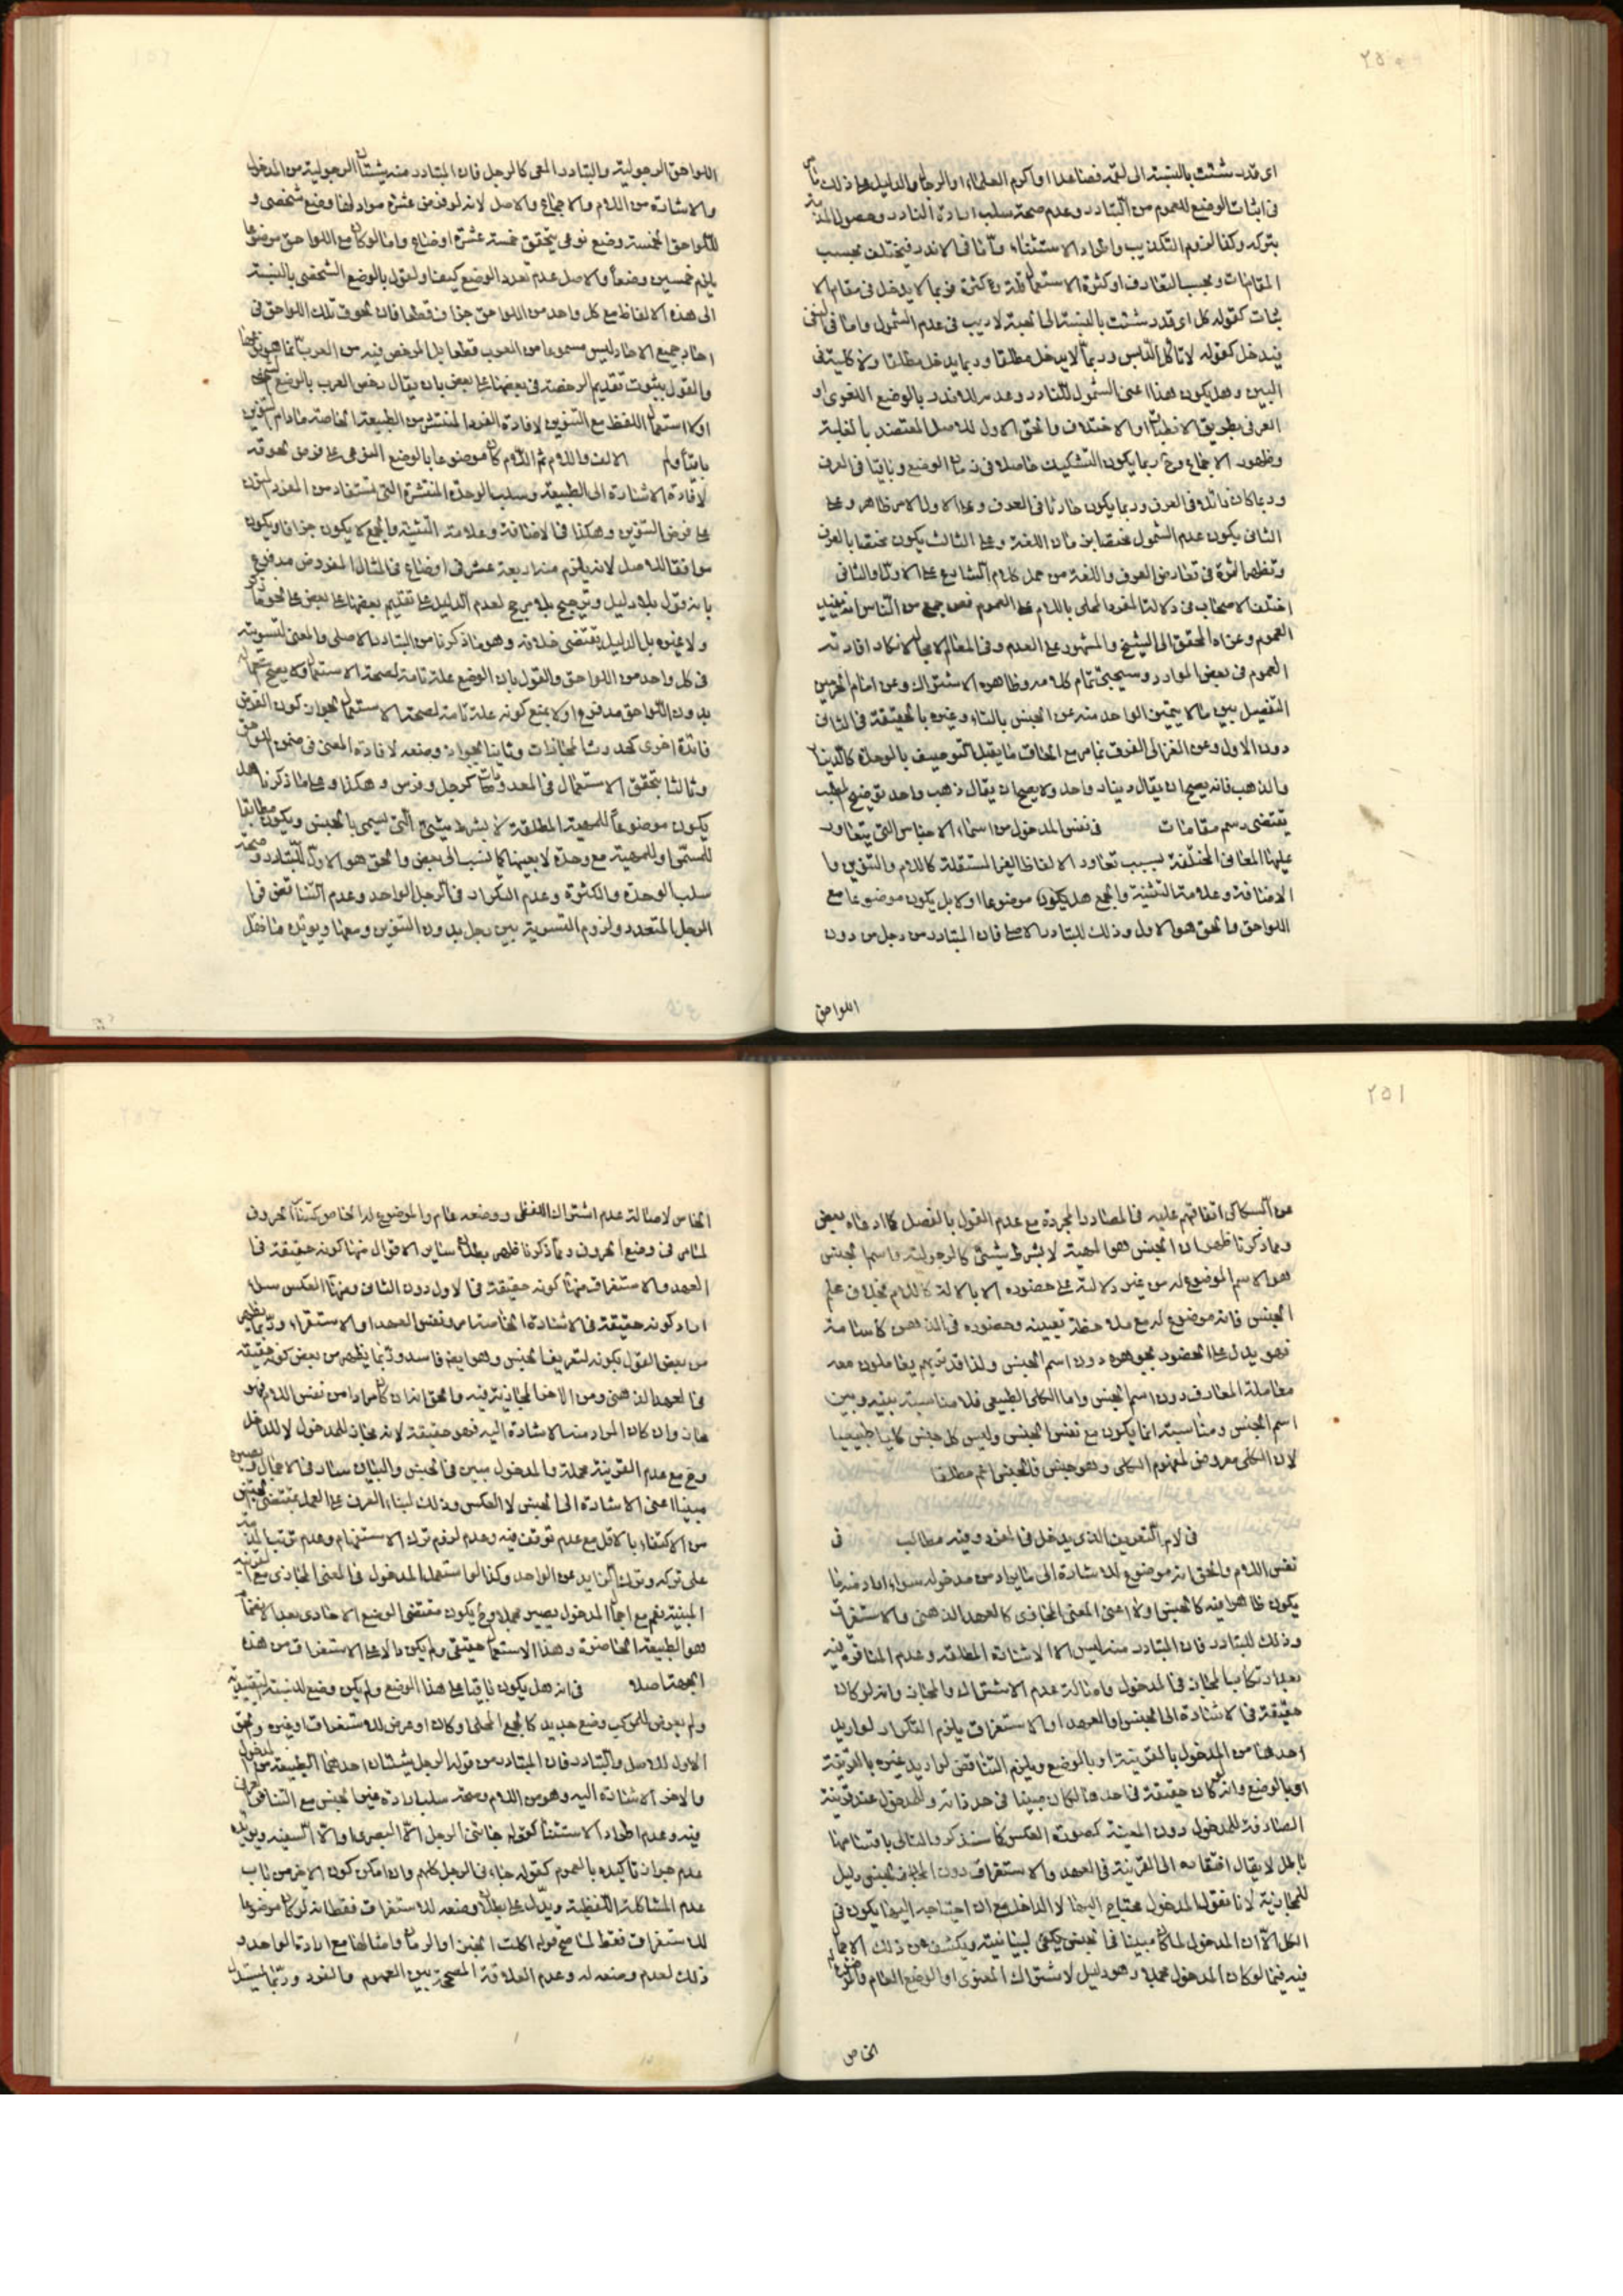 اى قدر شئت بالنسبة الى لقمة فصاعدا او اكرم العلماء او الرجال والدليل على ذلك
فى اثبات الوضع للعموم من التبادر وعدم صحة سلب ارادة النادر وحصول
بتركه وكذا لزوم التكذيب واطراد الاستثناء واما فى الاندر فيختلف بحسب
المقامات وبحسب التعارف او كثرة الاستعمال قلة وكثرة فربما لا يدخل فى مقام الا
ثبات كقوله كل اى قدر شئت بالنسبة الى حبة لا ريب فى عدم الشمول واما فى النفى
فيدخل كقوله لا تاكل الناس وربما لا يدخل مطلقا وربما يدخل مطلقا ولا كلية فى
البين وهل يكون هذا اعنى الشمول للنادر وعدمه للاندر بالوضع اللغوى او
العرفى بطريق الانطباق او الاختلاف والحق الاول للاصل المعتضد بالغلبة
وظهور الاجماع وح ربما يكون التشكيك حاصلا فى زمان الوضع وباقيا فى العرف
وربما كان زائلا فى العرف وربما يكون حادثا فى العرف وعلى الاول الامر ظاهر وعلى
الثانى يكون عدم الشمول مختصا بزمان اللغة وعلى الثالث يكون مختصا بالعرف
وتظهر الثمرة فى تعارض العرف واللغة من حمل كلام الشارع على الاول او الثانى
اختلف الاصحاب فى دلالة المفرد المحلى باللام على العموم فعن جمع من الناس انه يفيد
العموم وعزاه المحقق الى الشيخ والمشهور على العدم وفى المعالم لا مجال لانكار افادته
العموم فى بعض الموارد وسيجئ تمام كلامه وظاهره الاشتراك وعن امام الحرمين
التفصيل بين ما لا يتميز الواحد منه عن الجنس بالتاء وغيره بالحقيقة فى الثانى
دون الاول وعن الغزالى الفرق بما مر مع الحاق ما يقبل التوصيف بالوحدة كالدينار
والذهب فانه يصح ان يقال دينار واحد ولا يصح ان يقال ذهب واحد توضيح المطلب
يقتضى رسم مقامات فى نفس المدخول من اسماء الاجناس التى يتعاور
عليها المعانى المختلفة بسبب تعاور الالفاظ الغير المستقلة كاللام والتنوين وا
لاضافة وعلامة التثنية والجمع هل يكون موضوعا او لا بل يكون موضوعا مع
اللواحق والحق هو الاول وذلك للتبادر الاصلى فان المتبادر من رجل من دون
اللواحق
اللواحق الرجولية والتبادر المعى كالرجل فان المتبادر منه شيئان الرجولية من المدخول
والاشارة من اللام والاجماع والاصل لانه لو فرض عشرة مواد لها وضع شخصى و
للواحق الخمسة وضع نوعى يتحقق خمسة عشرة اوضاع واما لو كان مع اللواحق موضوعا
يلزم خمسين وضعا والاصل عدم تعدد الوضع كيف والقول بالوضع الشخصى بالنسبة
الى هذه الالفاظ مع كل واحد من اللواحق جزاف قطعا فان لحوق تلك اللواحق فى
احاد جميع الاحاد ليس مسموعا من العرب قطعا بل المرخص فيه من العرب
والقول بثبوت تقديم الرخصة فى بعضها على بعض بان يقال رخص العرب بالوضع
اولا استعمال اللفظ مع التنوين لافادة الفرد المنتشر من الطبيعة الخاصة مادام التنوين
باقيا ولم الالف واللام ثم اللام كان موضوعا بالوضع النوعى على فرض لحوقه
لافادة الاشارة الى الطبيعة وسلب الوحدة المنتشرة التى تستفاد من المفرد المنون
على فرض التنوين وهكذا فى الاضافة وعلامة التثنية والجمع لا يكون جزافا ويكون
موافقا للاصل لانه يلزم منه اربعة عشر فى اوضاع فى المثال المفروض مدفوع
بانه قول بلا دليل وترجيح بلا مرجح لعدم الدليل على تقديم بعضها على بعض على نحو ما
ولا غيره بل الدليل يقتضى خلافه وهو ما ذكرنا من التبادر الاصلى والمعى لتسويته
فى كل واحد من اللواحق والقول بان الوضع علة تامة لصحة الاستعمال ولا يصح
بدون اللواحق مدفوع اولا بمنع كونه علة تامة لصحة الاستعمال لجواز كون الغرض
فائدة اخرى كحدوث المجازات وثانيا بجواز وضعه لافادة المعنى فى ضمن اللواحق
وثالثا بتحقق الاستعمال فى المعدودات كرجل وفرس وهكذا وعلى ما ذكرنا هل
يكون موضوعا للمهية المطلقة لا بشرط شئ التى يسمى بالجنس ويكون مطابقا
للمسمى او للمهية مع وحدة لا بعينها كما نسب الى بعض والحق هو الاول للتبادر وصحة
سلب الوحدة والكثرة وعدم التكرار فى الرجل الواحد وعدم التناقض فى ا
لرجل المتعدد ولزوم التسوية بين رجل بدون التنوين ومعها ويؤيده ما نقل
عن السكاكى اتفاقهم عليه فى المصادر المجردة مع عدم القول بالفصل كما ادعاه بعض
ومما ذكرنا ظهر ان الجنس هو المهية لا بشرط شئ كالرجولية واسم الجنس
هو الاسم الموضوع له من غير دلالة على حضوره الا بالالة كاللام بخلاف علم
الجنس فانه موضوع له مع ملاحظة تعيينه وحضوره فى الذهن كاسامة
فهو يدل على الحضور بجوهره دون اسم الجنس ولذا قد تريهم يعاملون معه
معاملة المعارف دون اسم الجنس واما الكلى الطبيعى فلا مناسبة بينه وبين
اسم الجنس ومناسبة انما يكون مع نفس الجنس وليس كل جنس كليا طبيعيا
لان الكلى معروض لمفهوم الكلى وهو جنس فالجنس اعم مطلقا
فى لام التعريف الذى يدخل فى المفرد وفيه مطالب فى
نفس اللام والحق انه موضوع للاشارة الى ما يراد من مدخوله سواء اراد منه ما
يكون ظاهرا فيه كالجنس اولا اعنى المعنى المجازى كالعهد الذهنى والاستغراق
وذلك للتبادر فان المتبادر منه ليس الا الاشارة المطلقة وعدم المنافرة فيه
بعد ارتكاب المجاز فى المدخول واصالة عدم الاشتراك والمجاز وانه لو كان
حقيقة فى الاشارة الى الجنس او العهد او الاستغراق يلزم التكرار لو اريد
احدها من المدخول بالقرينة او بالوضع ويلزم التناقض لو اريد غيره بالقرينة
او بالوضع وانه لو كان حقيقة فى احدها لكان مبينا فى حد ذاته والمدخول عند قرينة
الصارفة للمدخول دون المعينة كصورة العكس كما سنذكر والتالى باقسامها
باطل لا يقال افتقاره الى القرينة فى العهد والاستغراق دون الجنس دليل
للمجازية لانا نقول المدخول محتاج اليها لا الداخل مع ان احتياجه اليها يكون فى
الكل الا ان المدخول لما كان مبينا فى الجنس يكفى لبيانيته ويكشف عن ذلك الاجمال
فيه فيما لو كان المدخول مجملا وهو دليل لاشتراك المعنوى او الوضع العام والموضوع له
الخاص
الخاص لاصالة عدم اشتراك اللفظى ووضعه عام والموضوع له الخاص كسائر الحروف
لما مر فى وضع الحروف ومما ذكرنا ظهر بطلان ساير الاقوال منها كونه حقيقة فى
العهد والاستغراق منها كونه حقيقة فى الاول دون الثانى ومنها العكس سواء
اراد كونه حقيقة فى الاشارة الخاصة او نفس العهد او الاستغراق وربما يظهر
من بعض القول بكونه لتعريف الجنس وهو ايضا فاسد وربما يظهر من بعض كونه حقيقة
فى العهد الذهنى ومن الاخر المجازية فيه والحق انه ان كان مرادا من نفس اللام فهو
مجاز وان كان المراد منه الاشارة اليه فهو حقيقة لانه مجاز للمدخول لا للداخل
وح مع عدم القرينة مجملة والمدخول مبين فى الجنس والبيان سار فى الاجمال ويصيره
مبينا اعنى الاشارة الى الجنس لا العكس وذلك لبناء العرف على العمل بمقتضى الجنس
من الاكتفاء بالاقل مع عدم توقف فيه وعدم لزوم ترك الاستفهام وعدم ترتب
على تركه وترك الزايد عن الواحد وكذا لو استعمل المدخول فى المعنى المجازى مع القرينة
المبينة نعم مع اجمال المدخول يصير مجملا وح يكون مقتضى الوضع الاحادى بعد الانضمام
هو الطبيعة الحاضرة وهذا الاستعمال حقيقى ولم يكن دالا على الاستغراق من هذه
الجهة اصلا فى انه هل يكون باقيا على هذا الوضع ولم يكن وضع للنسبة
ولم يعرض للمركب وضع جديد كالجمع المحلى او كان او عرض للاستغراق او غيره والحق
الاول للاصل والتبادر فان المتبادر من قوله الرجل شيئان احدهما الطبيعة من المدخول
والاخر الاشارة اليه وهو من اللام وصحة سلب ارادة غير الجنس مع التنافر العرفى
فيه وعدم اطراد الاستثناء كقوله جائنى الرجل الا البصرى او الا السفيه ويؤيده
عدم جواز تاكيده بالعموم كقوله جاءنى الرجل كلهم وان امكن كون الاخير من باب
عدم المشاكلة اللفظية ويدل على بطلان وضعه للاستغراق فقط انه لو كان موضوعا
للاستغراق فقط لما صح قوله اكلت الخبز او الرمان وامثالها مع ارادة الواحد و
ذلك لعدم وضعه له وعدم العلاقة المصححة بين العموم والفرد وربما يستدل